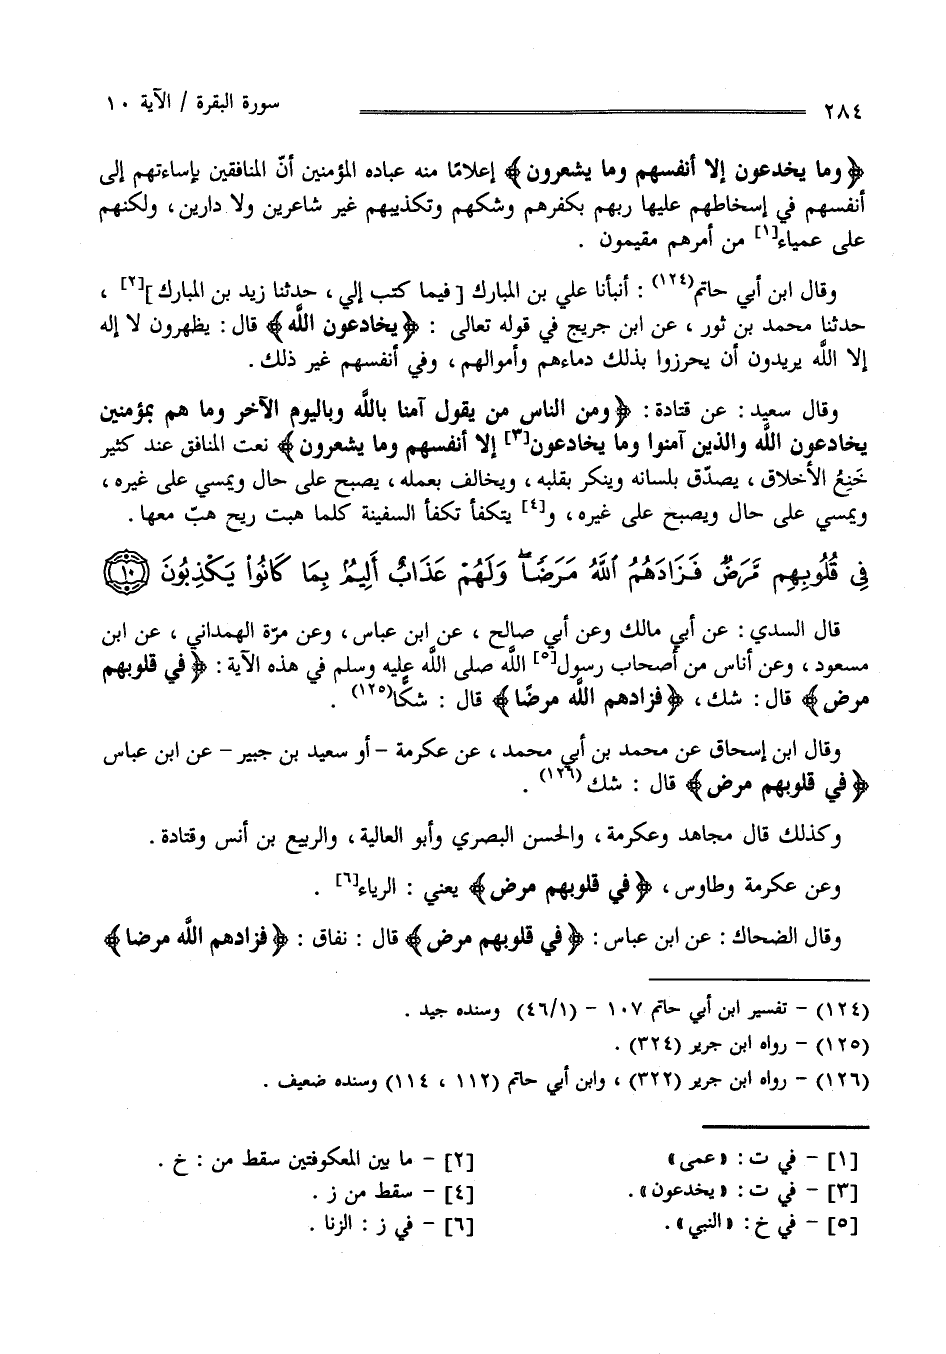 ٢٨٤ سورة البقرة / الآية ١٠
﴿وما يخدعون إلا أنفسهم وما يشعرون﴾ إعلامًا منه عباده المؤمنين أنّ المنافقين بإساءتهم إلى
أنفسهم في إسخاطهم عليها ربهم بكفرهم وشكهم وتكذيبهم غير شاعرين ولا دارين، ولكنهم
على عمياء[١] من أمرهم مقيمون .
وقال ابن أبي حاتم(١٢٤) : أنبأنا علي بن المبارك [فيما كتب إلي، حدثنا زيد بن المبارك][٢] ،
حدثنا محمد بن ثور ، عن ابن جريج في قوله تعالى : ﴿يخادعون اللَّه﴾ قال: يظهرون لا إله
إلا اللَّه يريدون أن يحرزوا بذلك دماءهم وأموالهم، وفي أنفسهم غير ذلك.
وقال سعيد: عن قتادة: ﴿ومن الناس من يقول آمنا باللَّه وباليوم الآخر وما هم بمؤمنين
يخادعون اللَّه والذين آمنوا وما يخادعون[٣] إلا أنفسهم وما يشعرون﴾ نعت المنافق عند كثير
خَنِعُ الأخلاق ، يصدّق بلسانه وينكر بقلبه، ويخالف بعمله، يصبح على حال ويمسي على غيره،
ويمسي على حال ويصبح على غيره، و[٤] يتكفأ تكفأ السفينة كلما هبت ريح هبّ معها.
فِي قُلُوبِهِم مَّرَضٌ فَزَادَهُمُ ٱللَّهُ مَرَضًاۖ وَلَهُمْ عَذَابٌ أَلِيمٌۢ بِمَا كَانُوا۟ يَكْذِبُونَ ١٠
قال السدي: عن أبي مالك وعن أبي صالح ، عن ابن عباس، وعن مرّة الهمداني ، عن ابن
مسعود ، وعن أناس من أصحاب رسول[٥] اللَّه صلى اللَّه عليه وسلم في هذه الآية: ﴿في قلوبهم
مرض﴾ قال: شك، ﴿فزادهم اللَّه مرضًا﴾ قال : شكًّا(١٢٥) .
وقال ابن إسحاق عن محمد بن أبي محمد، عن عكرمة - أو سعيد بن جبير - عن ابن عباس
﴿في قلوبهم مرض﴾ قال : شك(١٢٦) .
وكذلك قال مجاهد وعكرمة، والحسن البصري وأبو العالية، والربيع بن أنس وقتادة.
وعن عكرمة وطاوس، ﴿في قلوبهم مرض﴾ يعني : الرياء[٦] .
وقال الضحاك: عن ابن عباس: ﴿في قلوبهم مرض﴾ قال : نفاق : ﴿فزادهم اللَّه مرضا﴾
(١٢٤) - تفسير ابن أبي حاتم ١٠٧ - (٤٦/١) وسنده جيد .
(١٢٥) - رواه ابن جرير (٣٢٤) .
(١٢٦) - رواه ابن جرير (٣٢٢) ، وابن أبي حاتم (١١٢ ، ١١٤) وسنده ضعيف .
[١] - في ت: «عمى» [٢] - ما بين المعكوفتين سقط من : خ .
[٣] - في ت: «يخدعون». [٤] - سقط من ز .
[٥] - في خ: «النبي». [٦] - في ز : الزنا .